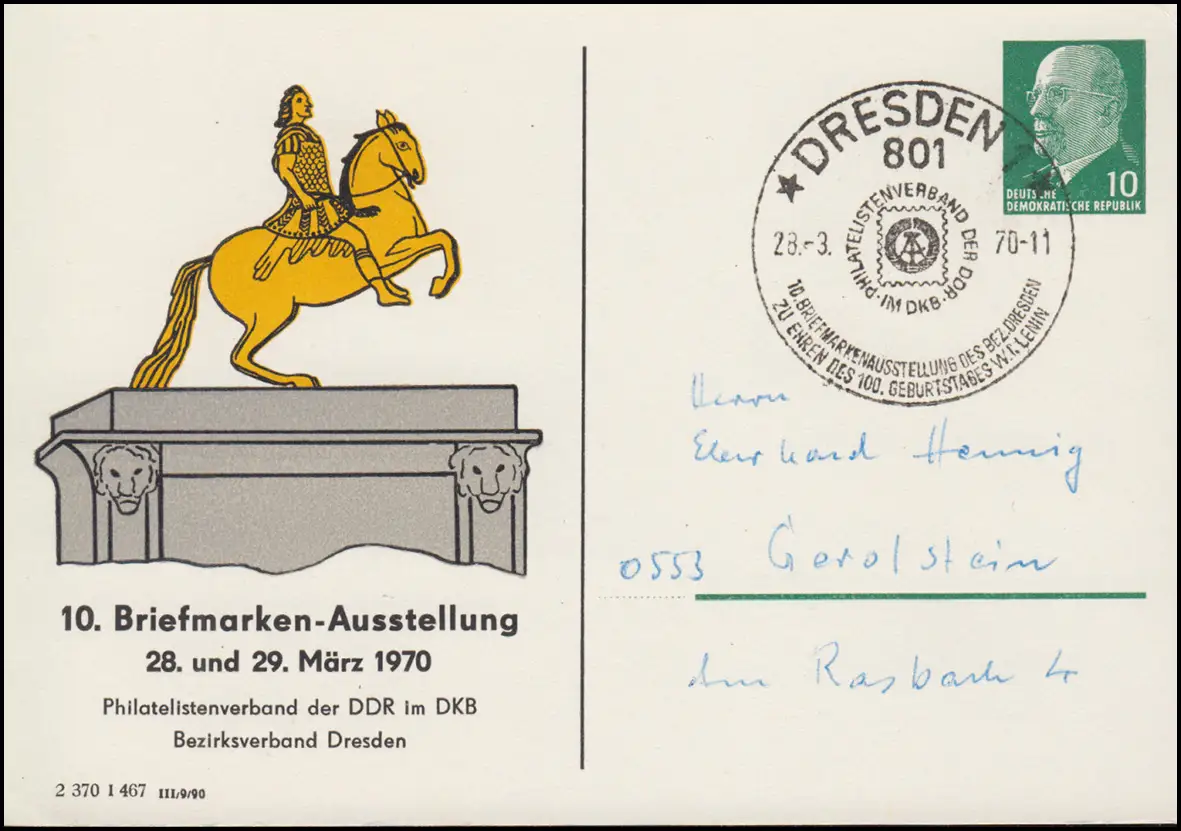 10. Briefmarken-Ausstellung
28. und 29. März 1970
Philatelistenverband der DDR im DKB
Bezirksverband Dresden
2 370 1 467 III/9/90
DRESDEN 1
801
PHILATELISTENVERBAND DER DDR · IM DKB ·
28.-3. 70-11
10. BRIEFMARKENAUSSTELLUNG DES BEZ. DRESDEN
ZU EHREN DES 100. GEBURTSTAGES W. I. LENIN
10
DEUTSCHE
DEMOKRATISCHE REPUBLIK
Herrn
Eberhard Hennig
0553 Gerolstein
Am Rasbach 4